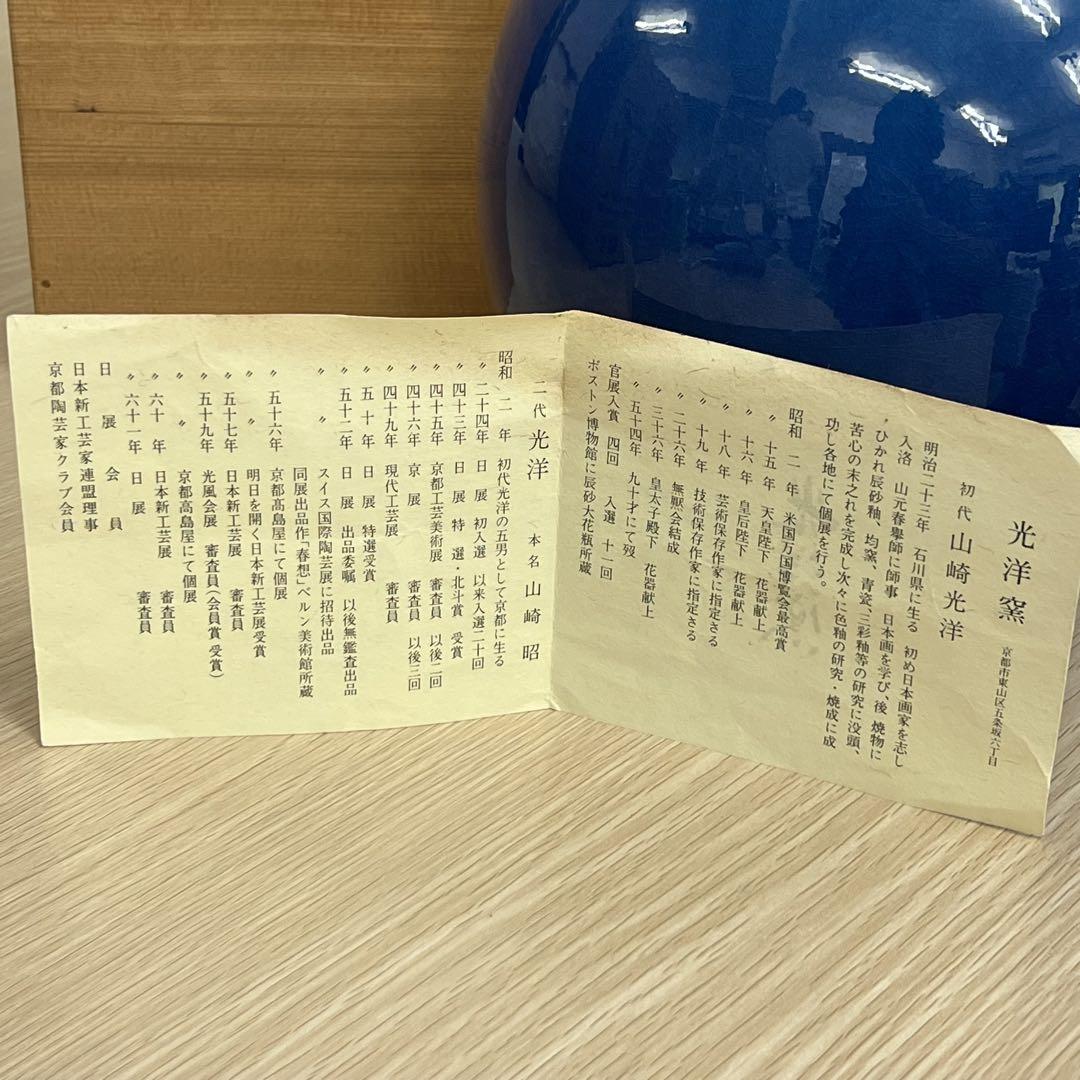 光洋窯 京都市東山区五条坂六丁目
初代 山崎光洋
明治二十三年 石川県に生る 初め日本画家を志し
入洛 山元春挙師に師事 日本画を学び、後 焼物に
ひかれ辰砂釉、均窯、青瓷、三彩釉等の研究に没頭、
苦心の末之れを完成し次々に色釉の研究・焼成に成
功し各地にて個展を行う。
昭和 二 年 米国万国博覧会最高賞
〃 十五年 天皇陛下 花器献上
〃 十六年 皇后陛下 花器献上
〃 十八年 芸術保存作家に指定さる
〃 十九年 技術保存作家に指定さる
〃 二十六年 無厭会結成
〃 三十六年 皇太子殿下 花器献上
〃 五十四年 九十才にて歿
官展入賞 四回 入選 十一回
ボストン博物館に辰砂大花瓶所蔵
二代 光洋 本名 山崎 昭
昭和 二 年 初代光洋の五男として京都に生る
〃 二十四年 日展 初入選 以来入選二十回
〃 四十三年 日展 特選・北斗賞 受賞
〃 四十五年 京都工芸美術展 審査員 以後二回
〃 四十六年 京展 審査員 以後三回
〃 四十九年 現代工芸展 審査員
〃 五十年 日展 特選受賞
〃 五十二年 日展 出品委嘱 以後無鑑査出品
〃 〃 スイス国際陶芸展に招待出品
同展出品作「春想」ベルン美術館所蔵
〃 五十六年 京都高島屋にて個展
〃 〃 明日を開く日本新工芸展受賞
〃 五十七年 日本新工芸展 審査員
〃 五十九年 光風会展 審査員(会員賞 受賞)
〃 〃 京都高島屋にて個展
〃 六十年 日本新工芸展 審査員
〃 六十一年 日展 審査員
日展会員
日本新工芸家連盟理事
京都陶芸家クラブ会員